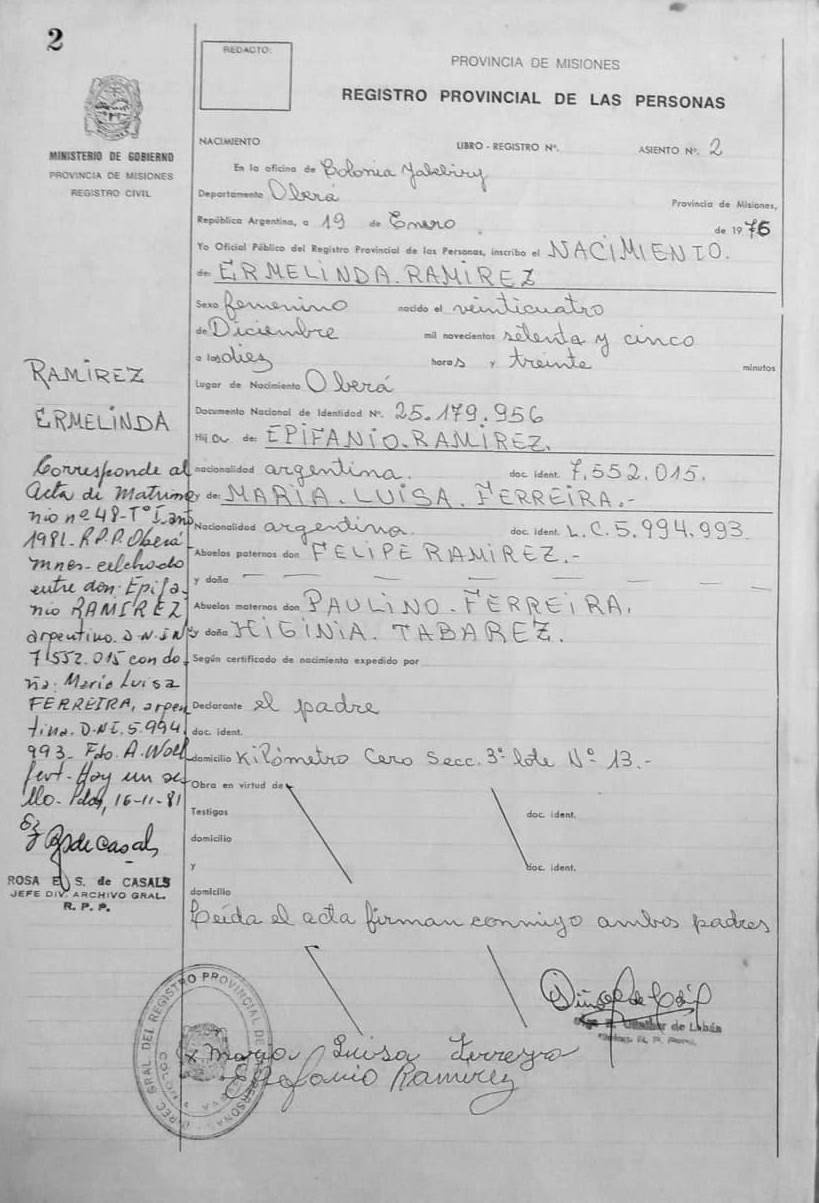 2
MINISTERIO DE GOBIERNO
PROVINCIA DE MISIONES
REGISTRO CIVIL
REDACTO:
PROVINCIA DE MISIONES
REGISTRO PROVINCIAL DE LAS PERSONAS
NACIMIENTO LIBRO - REGISTRO Nº. ASIENTO Nº. 2
En la oficina de Colonia Yabebiry
Departamento Oberá Provincia de Misiones,
República Argentina, a 19 de Enero de 1976
Yo Oficial Público del Registro Provincial de las Personas, inscribo el NACIMIENTO.
de: ERMELINDA. RAMIREZ
Sexo femenino nacido el veinticuatro
de Diciembre mil novecientos setenta y cinco
a las diez horas y treinta minutos
Lugar de Nacimiento Oberá
Documento Nacional de Identidad Nº. 25.179.956
Hij a de: EPIFANIO. RAMIREZ.
nacionalidad argentina. doc. ident. 7.552.015.
y de: MARIA. LUISA. FERREIRA.-
Nacionalidad argentina. doc. ident. L.C. 5.994.993.
Abuelos paternos don FELIPE RAMIREZ.-
y doña — — — — — —
Abuelos maternos don PAULINO. FERREIRA.
y doña HIGINIA. TABAREZ.
Según certificado de nacimiento expedido por
Declarante el padre
doc. ident.
domicilio Kilómetro Cero Secc. 3ª lote Nº 13.-
Obra en virtud de
Testigos doc. ident.
domicilio
y doc. ident.
domicilio
Leída el acta firman conmigo ambos padres
RAMIREZ
ERMELINDA
Corresponde al
Acta de Matrimo
nio nº 48-Tº I. año
1981- R.P.P. Oberá
Mnes- celebrado
entre don: Epifa
nio RAMIREZ
argentino. D.N.I Nº
7.552.015 con do
ña: María Luisa
FERREIRA, argen
tina. D.N.I. 5.994
993- Fdo. A. Wolf
fert- Hay un se
llo- Pdas, 16-11-81
ROSA E. S. de CASALS
JEFE DIV. ARCHIVO GRAL.
R. P. P.
de Labán
x Maria Luisa Ferreyra
Epifanio Ramirez
DIREC. GRAL. DEL REGISTRO PROVINCIAL DE LAS PERSONAS